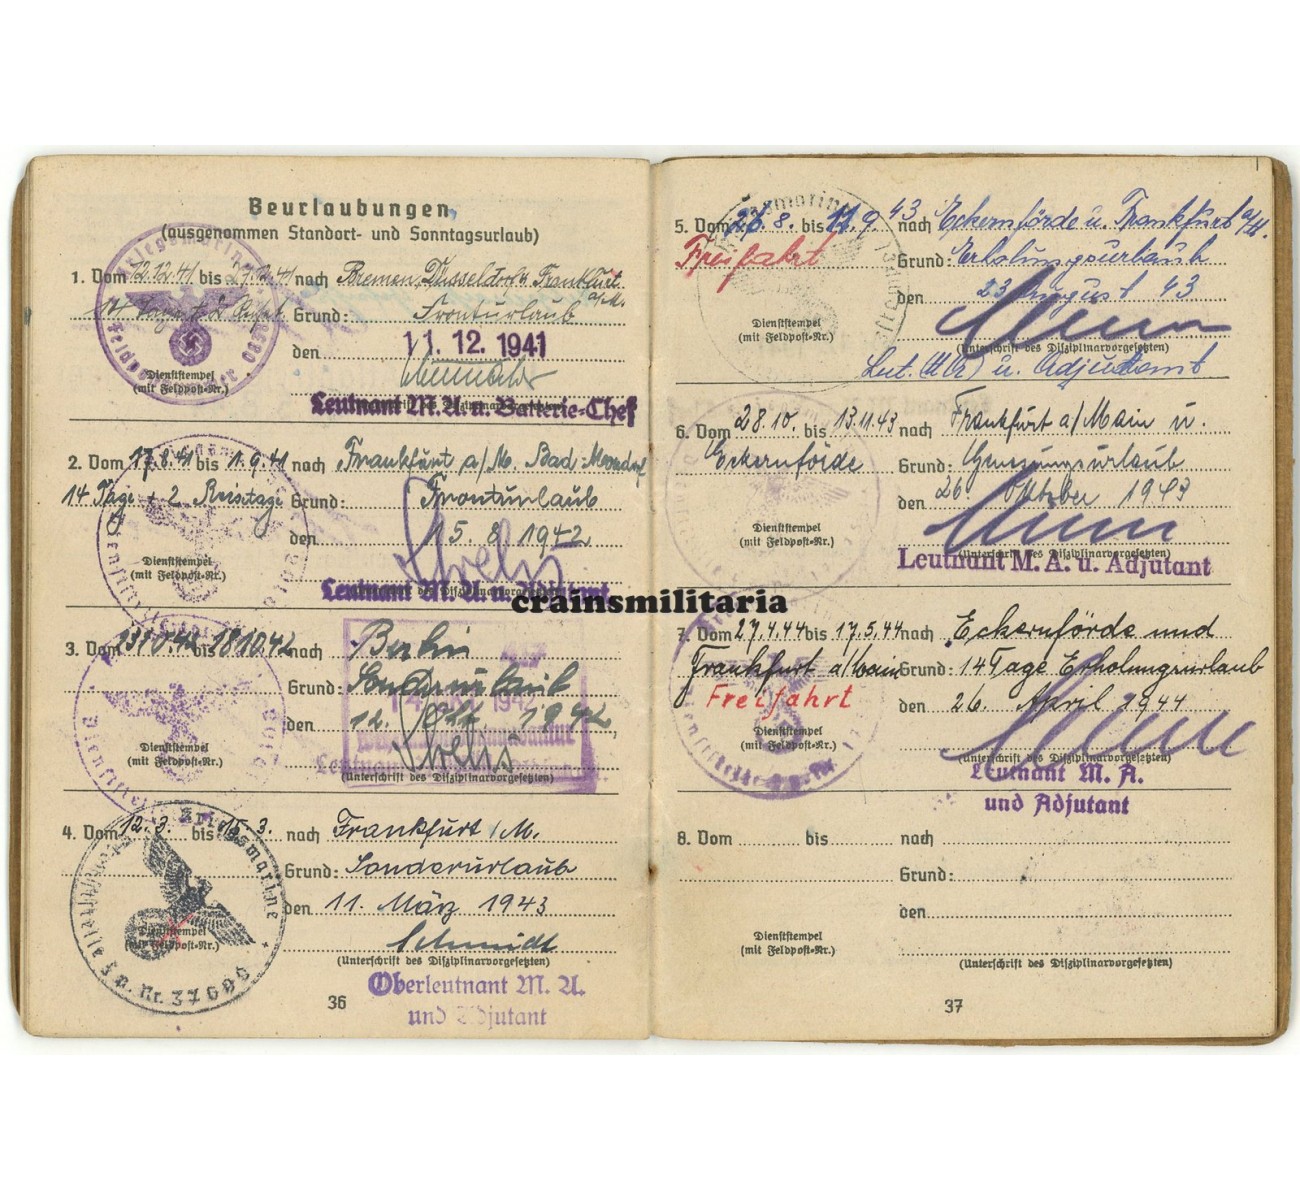 Beurlaubungen
(ausgenommen Standort- und Sonntagsurlaub)
1. Vom 12.12.41 bis 27.12.41 nach Bremen, Düsseldorf, Frankfurt a/M.
Grund: Fronturlaub
den 11. 12. 1941
Dienststempel
(mit Feldpost-Nr.)
Leutnant M. A. u. Batterie-Chef
2. Vom 17.8.41 bis 1.9.41 nach Frankfurt a/M. Bad
14 Tage + 2 Reisetage Grund: Fronturlaub
den 15. 8. 1942
Dienststempel
(mit Feldpost-Nr.)
Leutnant M. A. u. Adjutant
crainsmilitaria
3. Vom 13.10.42 bis 18.10.42 nach Berlin
Grund: Sonderurlaub
den 12. Okt. 1942
Dienststempel
(mit Feldpost-Nr.)
(Unterschrift des Disziplinarvorgesetzten)
4. Vom 12.3. bis 15.3. nach Frankfurt /M.
Grund: Sonderurlaub
den 11. März 1943
Dienststempel
(mit Feldpost-Nr.)
Schmidt
(Unterschrift des Disziplinarvorgesetzten)
Kriegsmarine
Oberleutnant M. A.
und Adjutant
36
5. Vom 26.8. bis 11.9.43 nach Eckernförde u. Frankfurt a/M.
Freifahrt Grund: Erholungsurlaub
den 23. August 43
Dienststempel
(mit Feldpost-Nr.)
(Unterschrift des Disziplinarvorgesetzten)
Lt. (M.A.) u. Adjutant
6. Vom 28.10. bis 13.11.43 nach Frankfurt a/Main u.
Eckernförde Grund: Genesungsurlaub
den 26. Oktober 1943
Dienststempel
(mit Feldpost-Nr.)
(Unterschrift des Disziplinarvorgesetzten)
Leutnant M. A. u. Adjutant
7. Vom 27.4.44 bis 17.5.44 nach Eckernförde und
Frankfurt a/Main Grund: 14 Tage Erholungsurlaub
Freifahrt den 26. April 1944
Dienststempel
(mit Feldpost-Nr.)
(Unterschrift des Disziplinarvorgesetzten)
Leutnant M. A.
und Adjutant
8. Vom bis nach
Grund:
den
Dienststempel
(mit Feldpost-Nr.)
(Unterschrift des Disziplinarvorgesetzten)
37